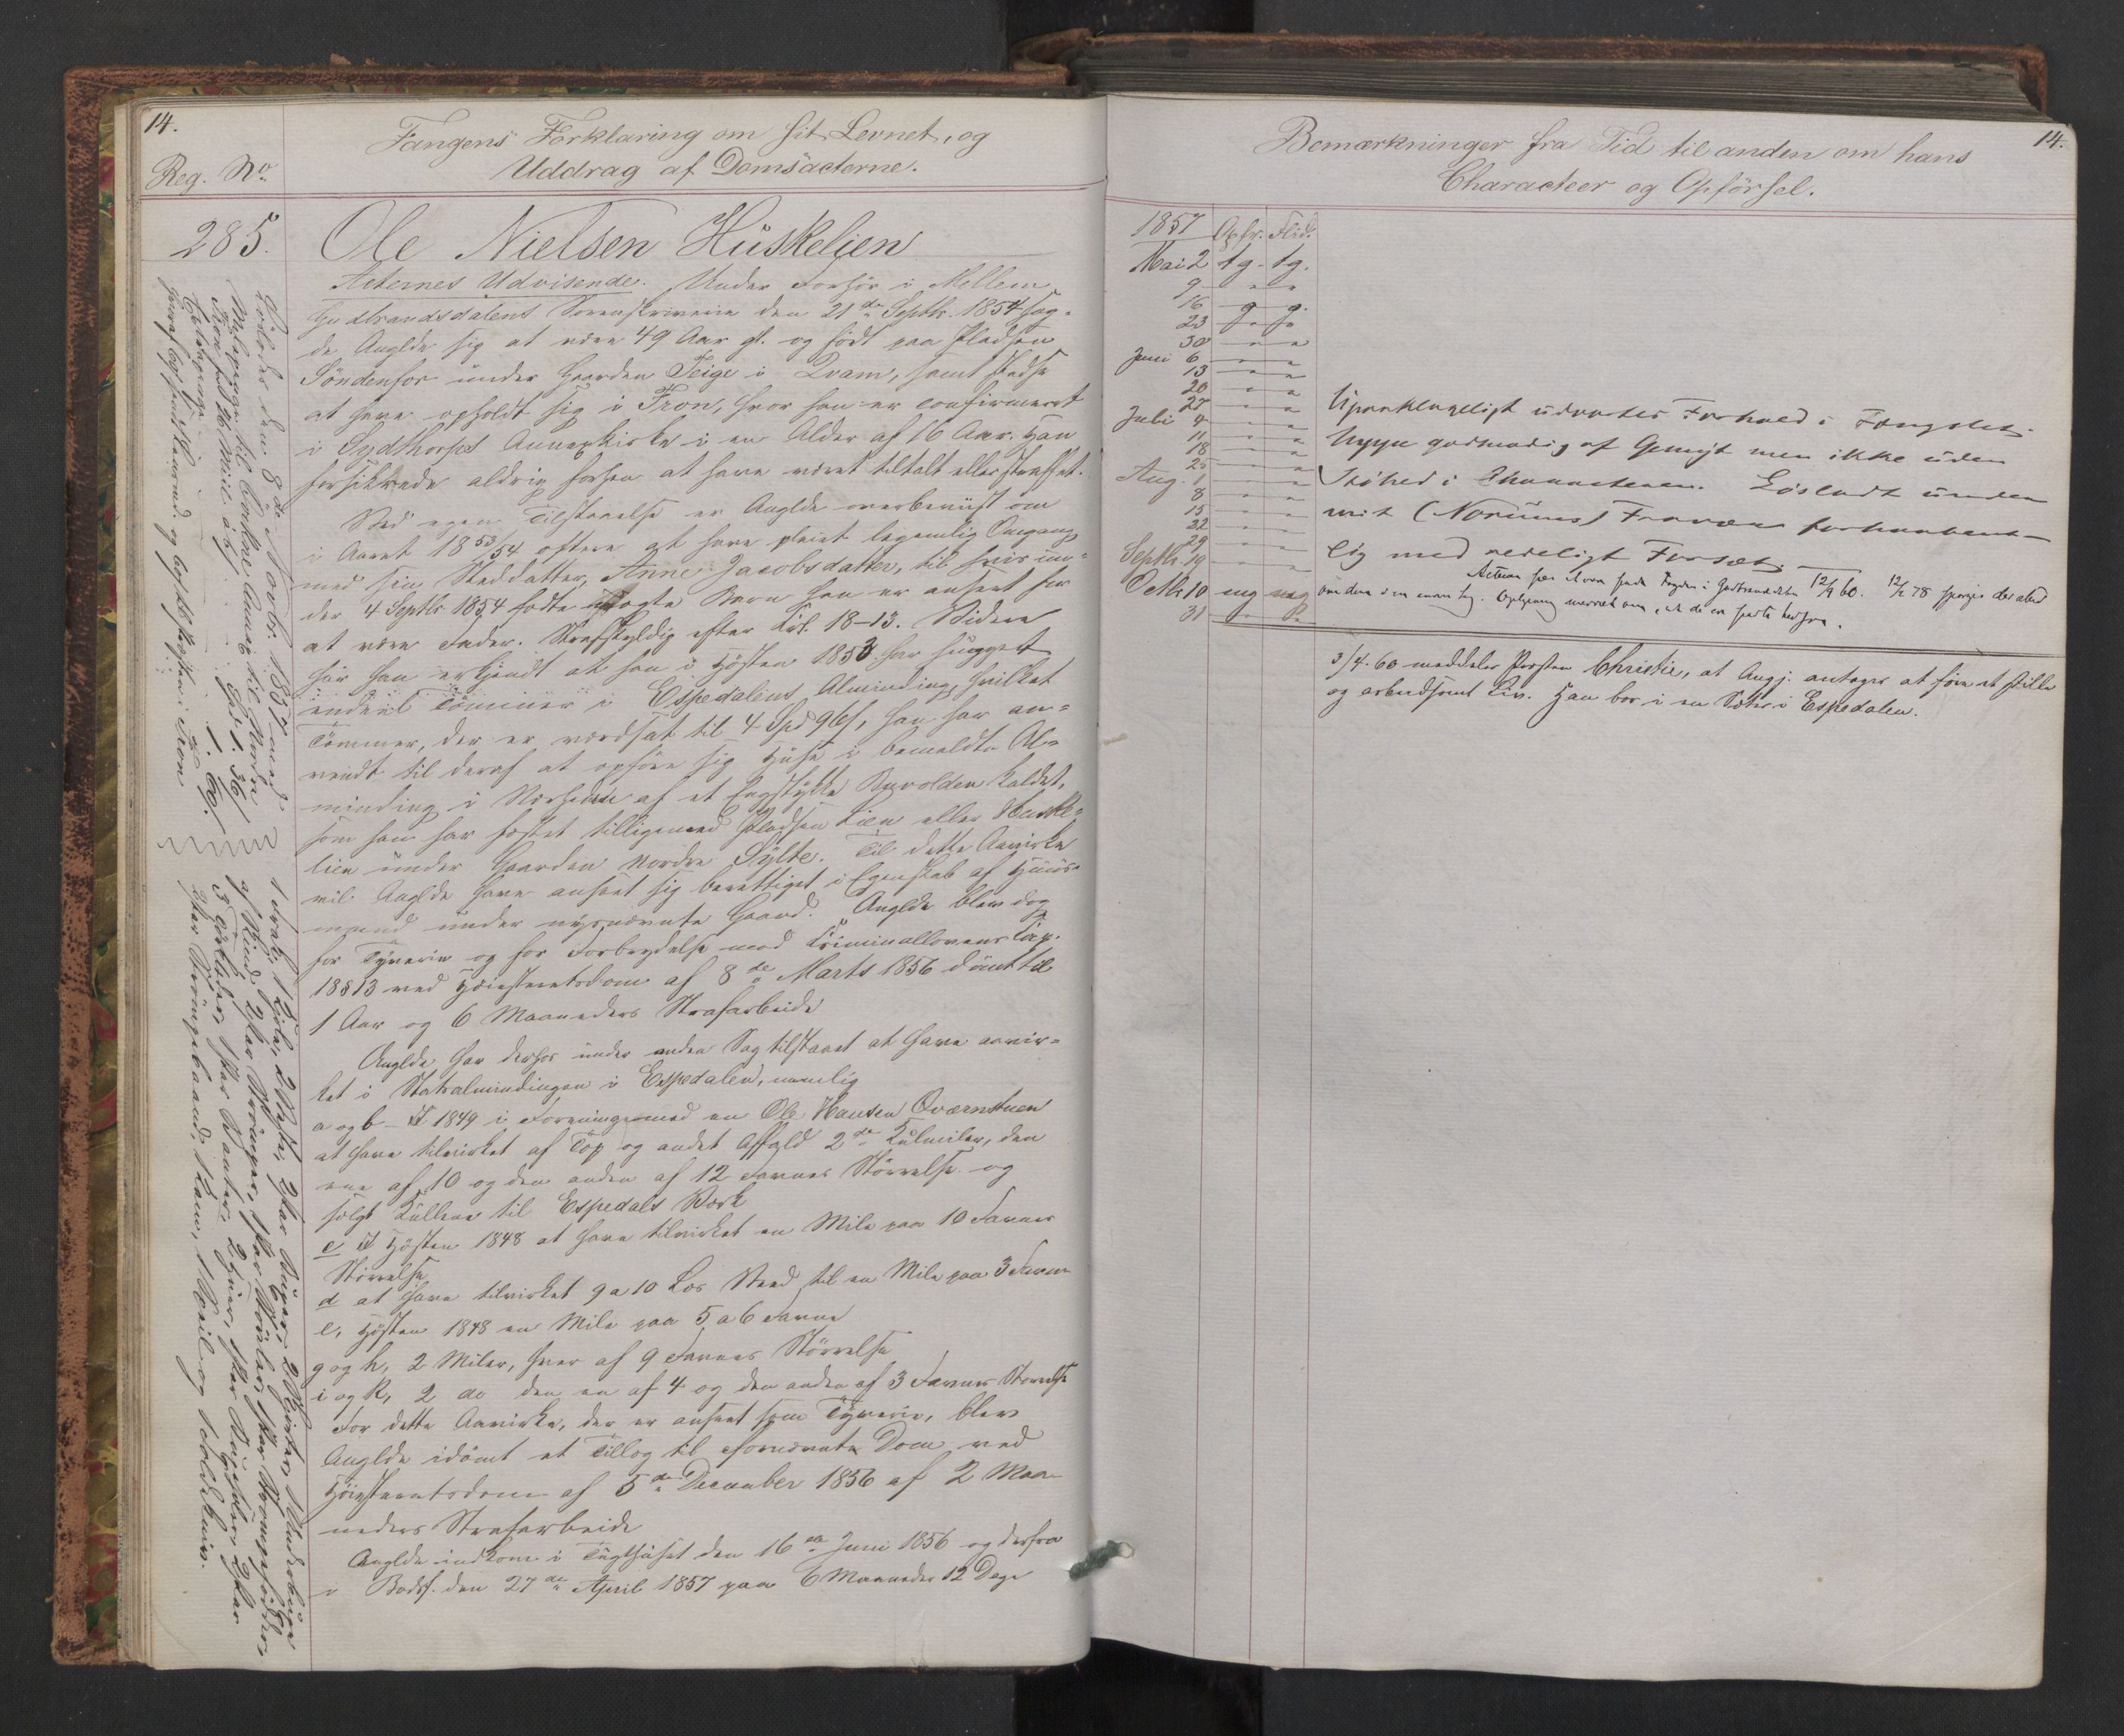 14.
Reg. No.
Fangens Forklaring om sit Levnet, og
Uddrag af Domsacterne.
285.
Ole Nielsen Huskelien
Acternes Udvisende. Under Forhör i Mellem
Gudbrandsdalens Sorenskriverie den 21de Septbr. 1854 sag-
de Anglde sig at være 49 Aar gl. og födt paa Pladsen
Söndenfor under Gaarden Teige i Qvam, samt stedse
at have opholdt sig i Fron, hvor han er confirmeret
i Sydthorpes Annexkirke i en Alder af 16 Aar. Han
forsikrede aldrig forhen at have været tiltalt eller straffet.
Ved egen Tilstaaelse er Anglde overbeviist om
i Aaret 1853/54 oftere at have pleiet legemlig Omgang
med sin Steddatter, Anne Jacobsdatter, til hvis un-
der 4 Septbr 1854 födte uægte Barn han er anseet for
at være Fader. Strafskyldig efter Crl. 18-13. Videre
har han erkjendt at han i Hösten 1853 har hugget
endeel Tömmer i Espedalens Alminding, hvilket
Tömmer, der er værdsat til 4 Spd 96 s, han har an-
vendt til deraf at opföre sig Huse i bemeldte Al-
minding i Nærheden af et Engstykke Byvolden kaldet,
som han har fæstet tilligemed Pladsen Lien eller Huske-
lien under Gaarden Nordre Sylte. Til dette Aavirke
vil Anglde have anseet sig berettiget i Egenskab af Huus-
mand under nysnævnte Gaard. Anglde blev dog
for Tyverie og for Forbrydelse mod Criminallovens Cap.
18 § 13 ved Höiesteretsdom af 8de Marts 1856 dömt til
1 Aar og 6 Maaneders Strafarbeide
Anglde har derhos under anden Sag tilstaaet at have aavir-
ket i Statsalmindingen i Espedalen, nemlig
a og b - I 1849 i Forening med en Ole Hansen Qværnstuen
at have tilvirket af Top og andet Affald 2de Kulmiler, den
ene af 10 og den anden af 12 Favnes Störrelse og
solgt Kullene til Espedals Værk
c I Hösten 1848 at have tilvirket en Mile paa 10 Favnes
Störrelse
d at have tilvirket 9 a 10 Læs Veed til en Mile paa 3 Favne
e, Hösten 1848 en Mile paa 5 a 6 Favne
g og h, 2 Miler, hver af 9 Favnes Störrelse
i og k, 2 do den en af 4 og den anden af 3 Favnes Störrelse
For dette Aavirke, der er anseet som Tyverie, blev
Anglde idömt et Tillæg til fornævnte Dom ved
Höiesteretsdom af 5de December 1856 af 2 Maa-
neders Strafarbeide
Anglde indkom i Tugthuset den 16de Juni 1856 og derfra
i Bodsf. den 27de April 1857 paa 6 Maaneder 12 Dage
Löslodes den 8de Novbr 1857 med
1 Frak, 1 Vest, 2 Par Buxer, 2 Skjorter, 1 Underbuxe
2 Par Strömper,
3 Törklæder, 1 Par Vanter, 2 Huer,
1 Par Strömpebaand, 1 Kam, 1 Speil og 1 Foldekniv.
Bemærkninger fra Tid til anden om hans
Characteer og Opförsel.
14.
1857 Opfr. Flid.
Mai 2 tg. tg.
9 " "
16 g g.
23 " "
30 " "
Juni 6 " "
13 " "
20 " "
27 " "
Juli 4 " "
11 " "
18 " "
25 " "
Aug. 1 " "
8 " "
15 " "
22 " "
29 " "
Septbr. 19 " "
Octbr 10 mg mg
31 " "
Upaaklageligt udvortes Forhold i Fængslet.
godmodig af Gemyt men ikke uden
i Characteren. Löslodt under
mit (Norums) Fravær forhaabent-
lig med redeligt Forsæt.
12/9 60. 12/2 78
3/4. 60 meddeler Presten Christie, at Angj. antages at före et stille
og arbeidsomt Liv. Han bor i en Sæter i Espedalen.